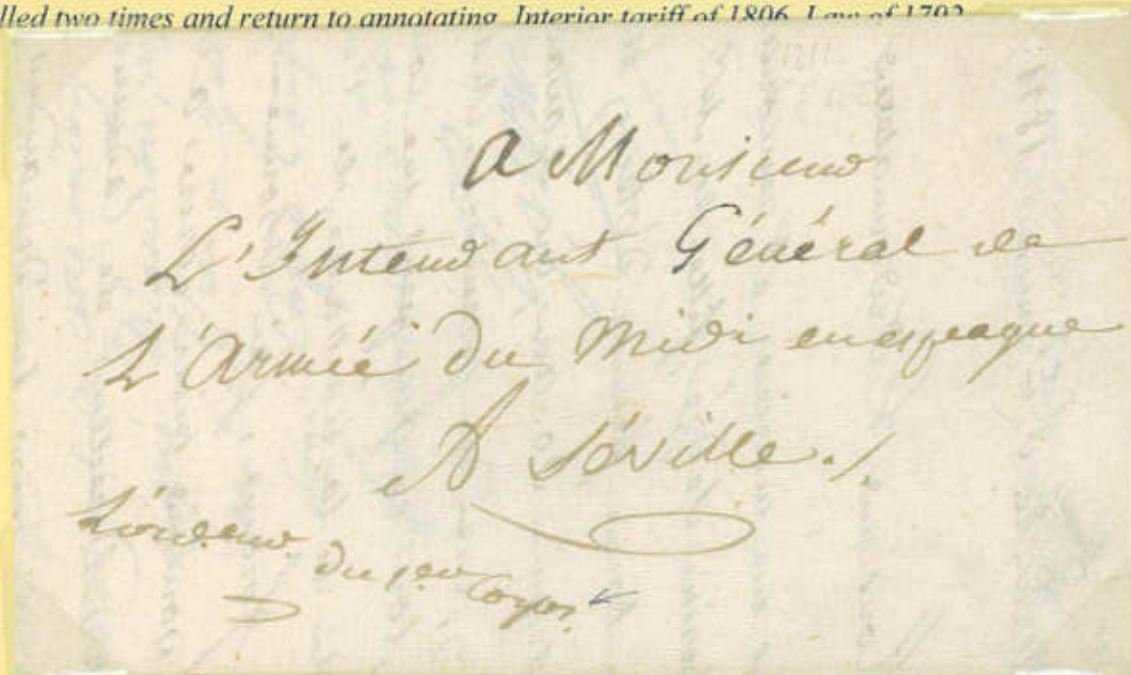 lled two times and return to annotating. Interior tariff of 1806. Law of 1792
A Monsieur
L'Intendant Général de
L'Armée du Midi en espagne
A Séville ./.
L'ord.eur
du 1.er Corps.